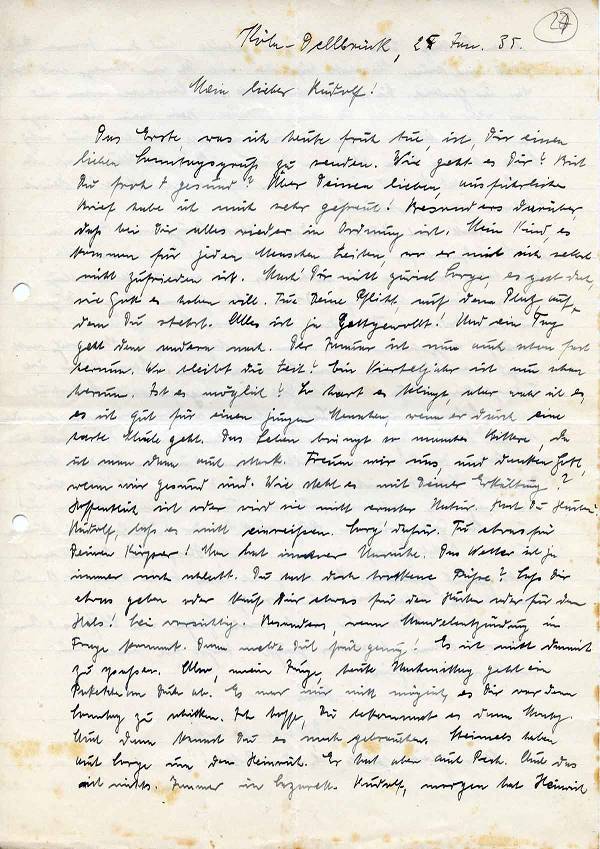 27
Köln-Dellbrück, 27 Jan. 35.
Mein lieber Rudolf!
Das Erste, was ich heute früh tue, ist, Dir einen
lieben Sonntagsgruß zu senden. Wie geht es Dir? Bist
Du froh & gesund? Über Deinen lieben, ausführlichen
Brief habe ich mich sehr gefreut! Besonders darüber,
daß bei Dir alles wieder in Ordnung ist. Mein Kind, es
kommen für jeden Menschen Zeiten, wo er mit sich selbst
nicht zufrieden ist. Mach' Dir nicht zuviel Sorge, es geht doch,
wie Gott es haben will. Tue Deine Pflicht, auf dem Platz, auf
dem Du stehst. Alles ist ja Gottgewollt! Und ein Tag
geht dem andern nach. Der Januar ist nun auch schon fast
herum. Wo bleibt die Zeit! Ein Vierteljahr ist nun schon
herum. Ist es möglich? So hart es klingt, aber wahr ist es,
es ist gut für einen jungen Menschen, wenn er durch eine
harte Schule geht. Das Leben bringt so manches Bittere, da
ist man dann auch stark. Freuen wir uns, und danken Gott,
wenn wir gesund sind. Wie steht es mit Deiner Erkältung?
Hoffentlich ist oder wird sie nicht ernster Natur. Hast Du Husten?
Rudolf, laß es nicht einreißen. Sorg' dafür. Tu etwas für
Deinen Körper! Man hat immer Unruhe. Das Wetter ist ja
immer noch schlecht. Du hast doch trockene Füße? Laß Dir
etwas geben oder kauf Dir etwas für den Husten oder für den
Hals! Sei vorsichtig. Besonders, wenn Mandelentzündung in
Frage kommt. Dann melde Dich früh genug! Es ist nicht damit
zu spaßen. Also, mein Junge, heute Nachmittag geht ein
Paketchen an Dich ab. Es war mir nicht möglich es Dir vor dem
Sonntag zu schicken. Ich hoffe, Du bekommst es dann Montag.
Und dann kannst Du es noch gebrauchen. Heimels haben
auch Sorge um den Heinrich. Er hat aber auch Pech. Auch das
ist nichts. Immer im Lazarett. Rudolf, morgen hat Heinrich